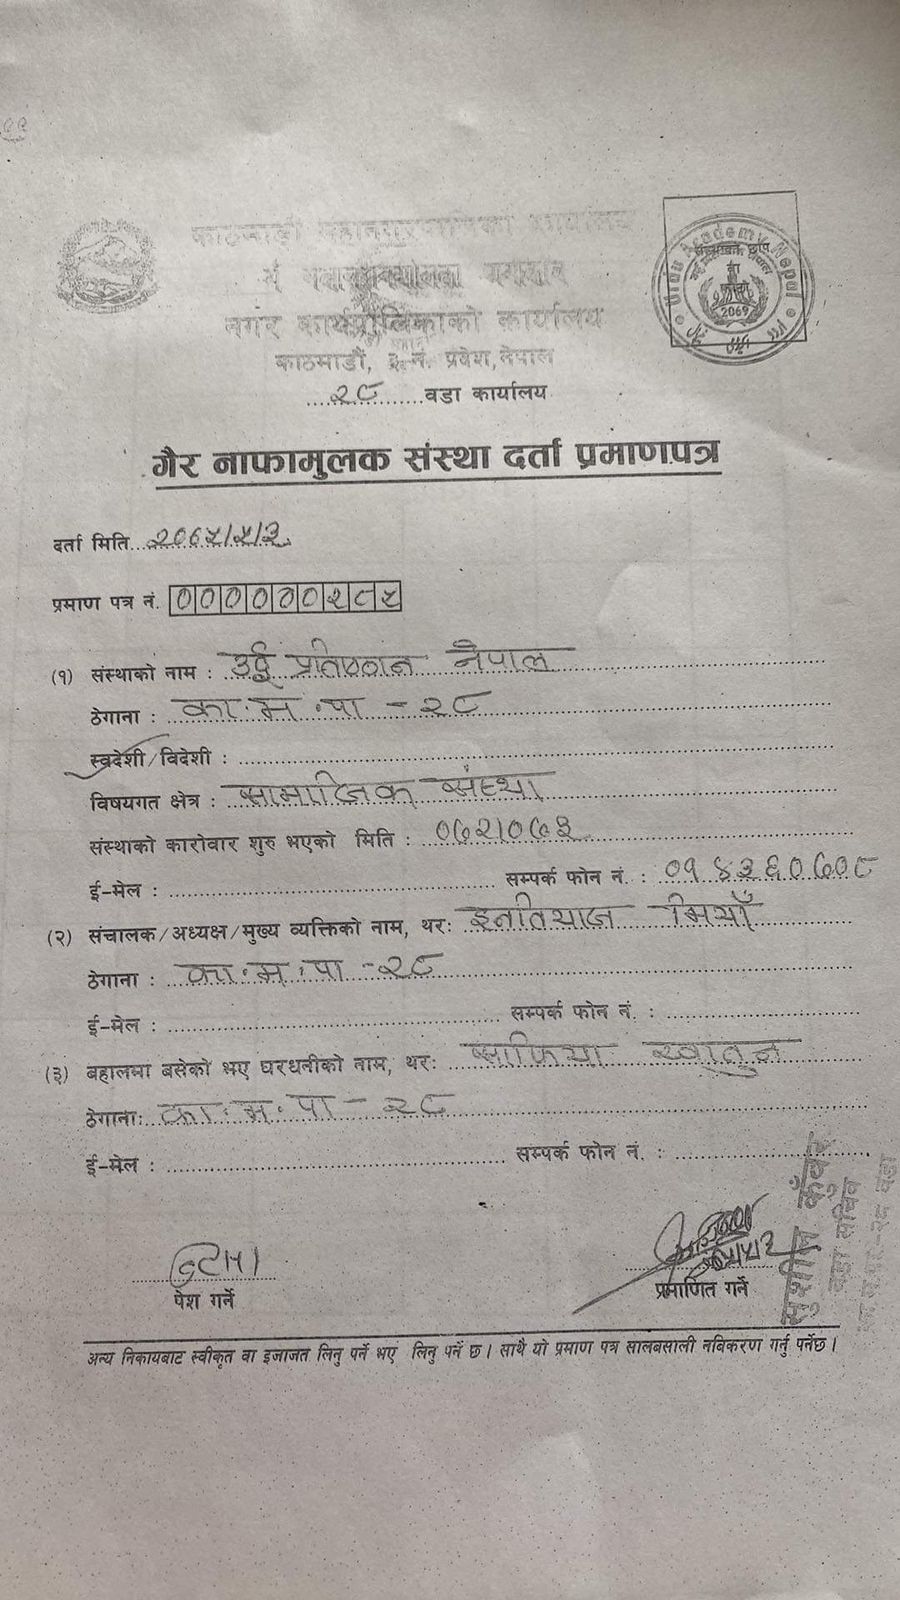 काठमाडौं महानगरपालिका कार्यालय
नगर कार्यपालिकाको कार्यालय
काठमाडौं, ३ नं. प्रदेश, नेपाल
२८ वडा कार्यालय
Urdu Academy Nepal
2069
गैर नाफामुलक संस्था दर्ता प्रमाणपत्र
दर्ता मिति
प्रमाण पत्र नं. ००००००२८५
(१) संस्थाको नाम : उर्दू प्रतिष्ठान नेपाल
ठेगाना : का.म.पा - २८
स्वदेशी/विदेशी :
विषयगत क्षेत्र : सामाजिक संस्था
संस्थाको कारोवार शुरु भएको मिति :
ई-मेल : सम्पर्क फोन नं. : ०१४३६०७०८
(२) संचालक/अध्यक्ष/मुख्य व्यक्तिको नाम, थर: इमतियाज मियाँ
ठेगाना : का.म.पा - २८
ई-मेल : सम्पर्क फोन नं. :
(३) बहालमा बसेको भए घरधनीको नाम, थर: साफिया खातुन
ठेगाना: का.म.पा - २८
ई-मेल : सम्पर्क फोन नं. :
पेश गर्ने
प्रमाणित गर्ने
सुशील कुँवर
वडा सचिव
अन्य निकायबाट स्वीकृत वा इजाजत लिनु पर्ने भए लिनु पर्ने छ। साथै यो प्रमाण पत्र सालबसाली नविकरण गर्नु पर्नेछ।